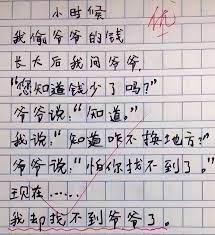 小时候
优
我偷爷爷的钱
长大后我问爷爷,
"您知道钱少了吗?"
爷爷说:"知道。"
我说:"知道咋不换地方?"
爷爷说:"怕你找不到了。"
现在……
我却找不到爷爷了。